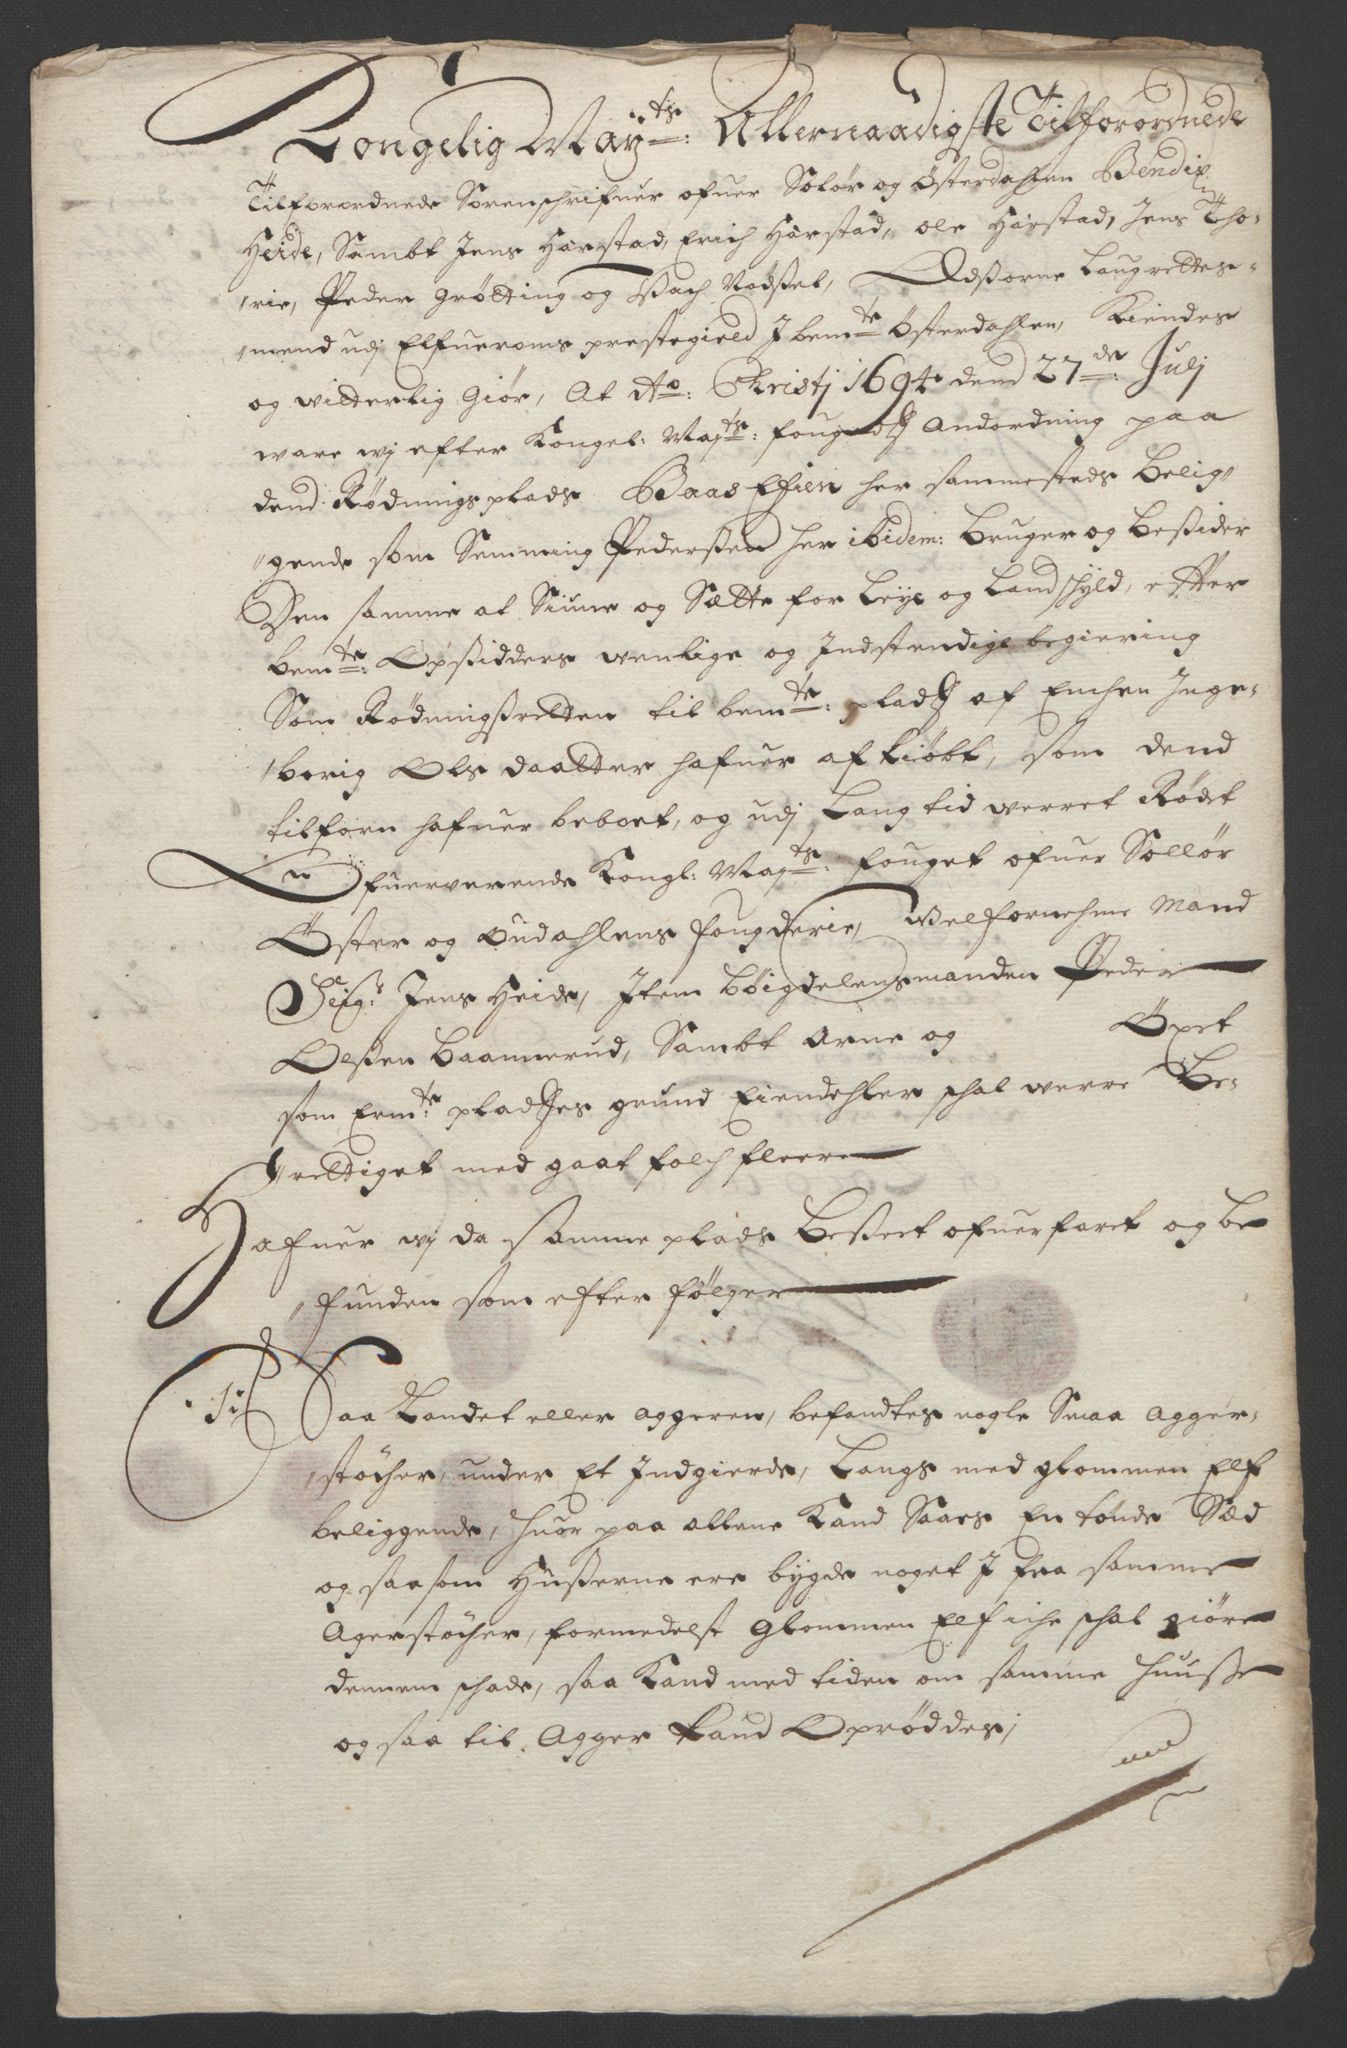 Kongelig Maÿts: Allernaadigste Tilforordnede
Tilforordnede Sorenschrifuer ofuer Solør og Østerdahlen Bendix
Heide, Sambt Jens Harstad, Erich Harstad, ole Harstad, Jens Tho¬
rie, Peder Grøtting og Bach Nødset, Ædsorne Laugrettes¬
mend udj Elfueroms prestegield I bemte Østerdahlen, Kiendes
og vitterlig Giør, At Ao: Christj 1694 dend 27de: Julj
ware wj efter Kongel: Mayts: fougets Andordning paa
dend Rødnings plads Baas Eien her sammesteds Belig¬
gende som Semming Pedersen her ibidem: Bruger og besider
Den samme at Siune og Sætte for Leÿe og Landschyld, etter
bemte: Opsidders venlige og Indstendige begiering
Som Rødningsretten til bemte: plads af Enchen Inge¬
borig Ols daatter hafuer af kiøbt, som dend
tilforn hafuer beboet, og udj Lang tid werret Rødet
Ofuerverende Kongl: Mayts: fouget ofuer Sollør
Øster og Oudahlens fougderie, Welfornehme Mand
Seigr Jens Heide, Item bøigdelensmanden Peder
Olsen Baannerud, Sambt Arne og Øxet
som Ermte: pladses grund Eiendehler schal werre Be¬
rettiget med gaat folch fleere
Hafuer wj da samme plads Beseet ofuerfaret og be
funden som efter følger
1: Saa Landet eller aggeren, befandtes nogle Smaa Agger¬
støcher, under Et Indgierde, Langs med glommen Elf
beliggende, huor paa allene Kand Saaes En tønde Sæd
og saasom Huserne ere bygde noget I fra samme
Agerstøcher, formedelst Glommen Elf iche schal giøre
dennem schade, saa Kand med tiden om samme Huuse
og saa til Agger Land Oprøddes;